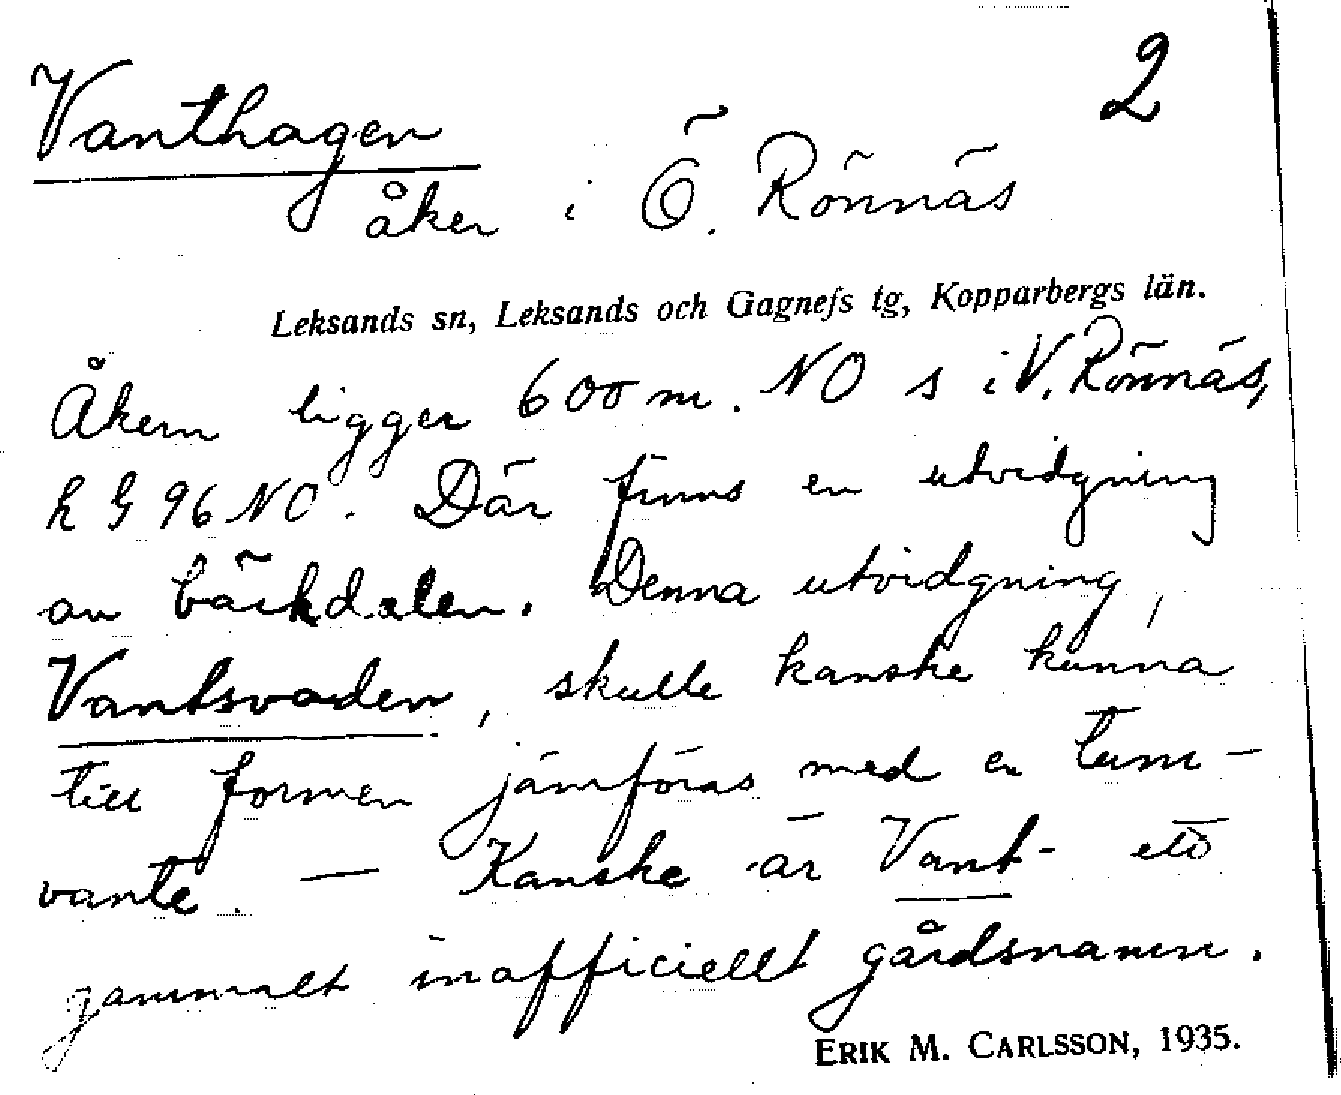 2
Vanthagen
åker i Ö. Rönnäs
Leksands sn, Leksands och Gagnefs tg, Kopparbergs län.
Åkern ligger 600 m. NO s i V. Rönnäs,
h G 96 NO. Där finns en utvidgning
av bäckdalen. Denna utvidgning,
Vantsvaden, skulle kanske kunna
till formen jämföras med en tum-
vante. — Kanske är Vant- ett
gammalt inofficiellt gårdsnamn.
ERIK M. CARLSSON, 1935.